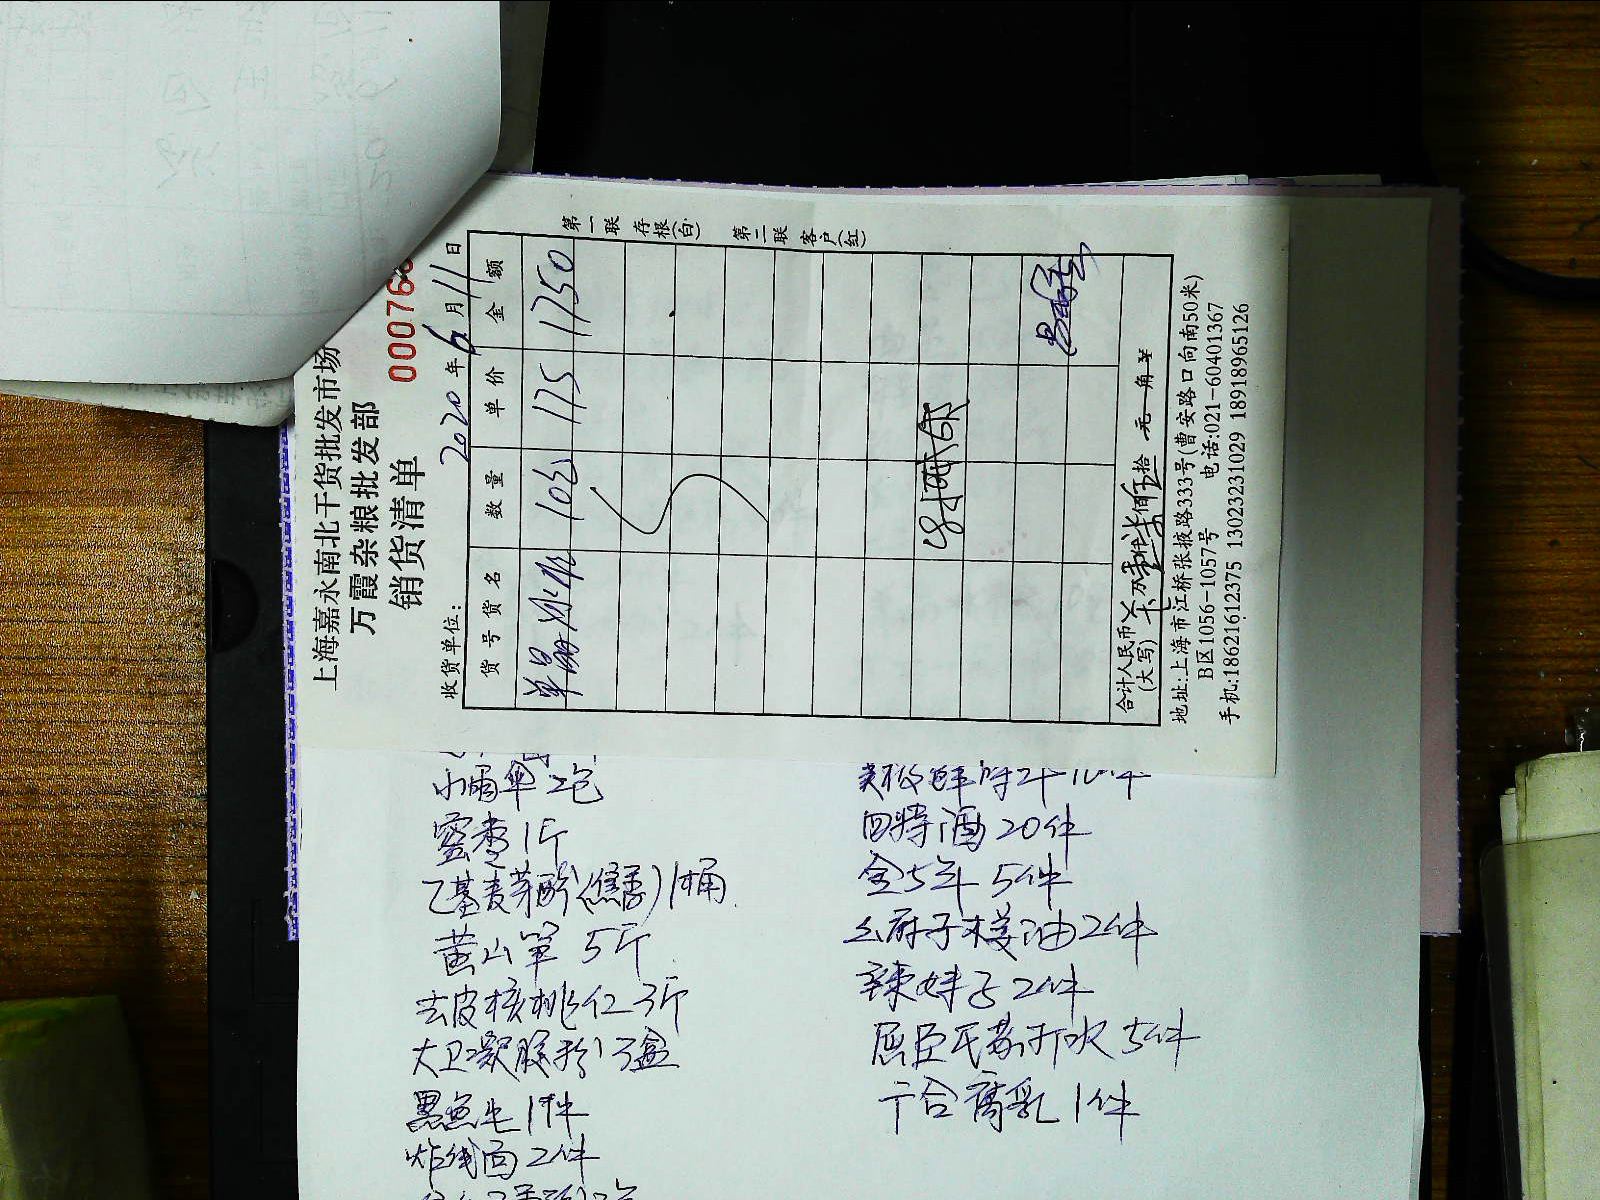 上海嘉永南北干货批发市场
万霞杂粮批发部
销货清单
000076
收货单位:
2020年6月11日
货号货名 数量 单价 金额
单晶冰糖 10包 175 1750
第一联 存根(白) 第二联 客户(红)
合计人民币(大写) 万 仟柒佰 拾 元 角 ¥
地址:上海市江桥张掖路333号(曹安路口向南50米)
B区1056-1057号 电话:021-60401367
手机:18621612375 13023231029 18918965126
小雨伞 2包
蜜枣1斤
乙基麦芽酚(焦香)1桶
黄山笋 5斤
去皮核桃仁 3斤
大卫凝胶粉 3盒
黑鱼片1件
炸线面2件
四特酒20件
金5年 5件
幺厨子 油2件
辣妹子2件
屈臣氏苏打水5件
广合腐乳1件